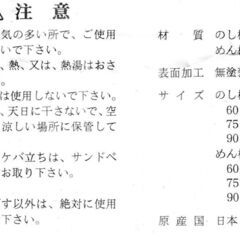 注意
気の多い所で、ご使用
いで下さい。
、熱、又は、熱湯はおさ
い。
は使用しないで下さい。
、天日に干さないで、空
涼しい場所に保管して
。
ケバ立ちは、サンドペ
お取り下さい。
す以外は、絶対に使用
下さい。
材質 のし
めん
表面加工 無塗
サイズ のし
60
75
90
めん
60
75
90
原産国 日本